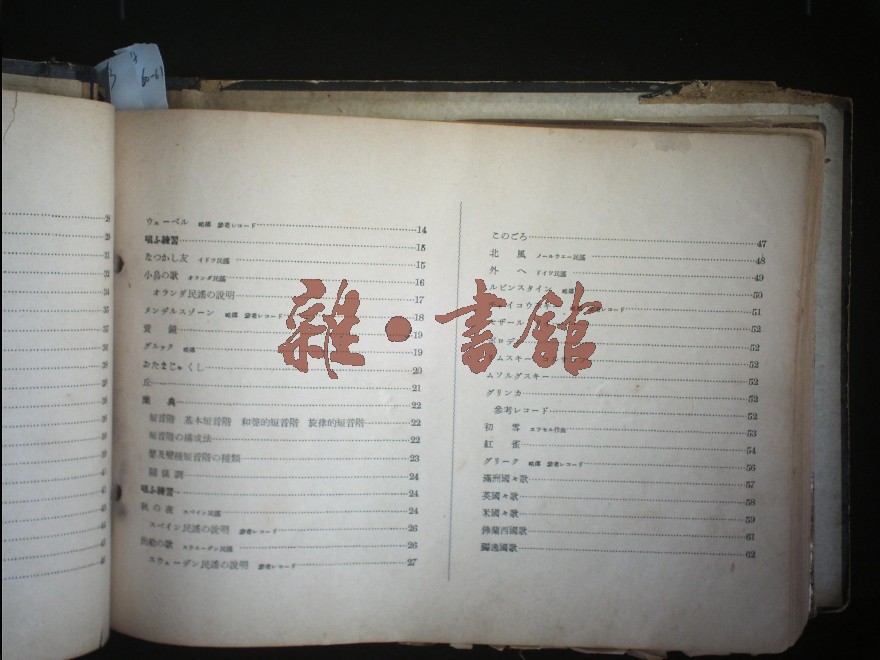 ウェーベル 略傳 參考レコード 14
唱ふ練習 15
なつかし友 イドツ民謠 15
小鳥の歌 オランダ民謠 16
オランダ民謠の說明 17
メンデルスゾーン 略傳 參考レコード 18
鏡 19
グルック 略傳 19
おたまじゃくし 20
丘 21
樂典 22
短音階 基本短音階 和聲的短音階 旋律的短音階 22
短音階の構成法 22
嬰及變種短音階の種類 23
關係調 24
唱ふ練習 24
秋の夜 スペイン民謠 24
スペイン民謠の說明 參考レコード 26
の歌 スウエーデン民謠 26
スウェーデン民謠の說明 參考レコード 27
このごろ 47
北風 ノールウエー民謠 48
外へ ドイツ民謠 49
ルビンスタイン 略傳 50
レコード 51
52
52
52
ムソルグスキー 52
グリンカ 52
參考レコード 52
初雪 作曲 53
紅雀 54
グリーク 略傳 參考レコード 56
滿洲國々歌 57
英國々歌 58
米國々歌 59
佛蘭西國歌 61
獨逸國歌 62
雜·書館
60-61